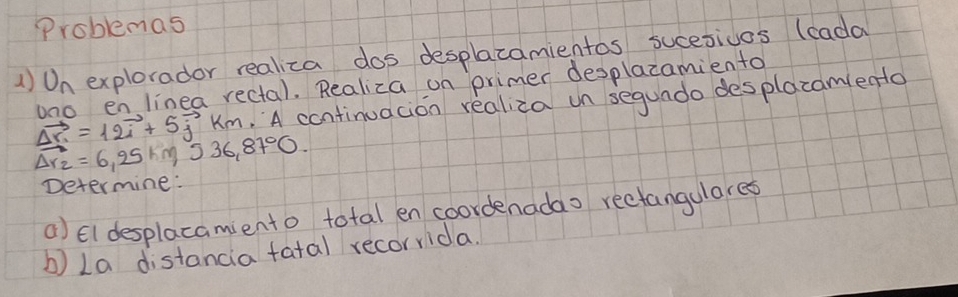 Problemas
1) Un explorador realiza dos desplazamientos sucesivos (cada
uno en linea recta). Realiza un primer desplazamiento
Δr₁ = 12i + 5j Km. A continuación realiza un segundo desplazamiento
Δr₂ = 6,25 Km S 36,87° O.
Determine:
a) El desplazamiento total en coordenadas rectangulares
b) La distancia total recorrida.